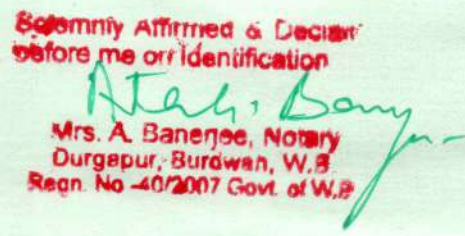 Solemnly Affirmed & Declar
before me on Identification
Mrs. A. Banerjee, Notary
Durgapur, Burdwan, W.B
Regn. No -40/2007 Govt. of W.B